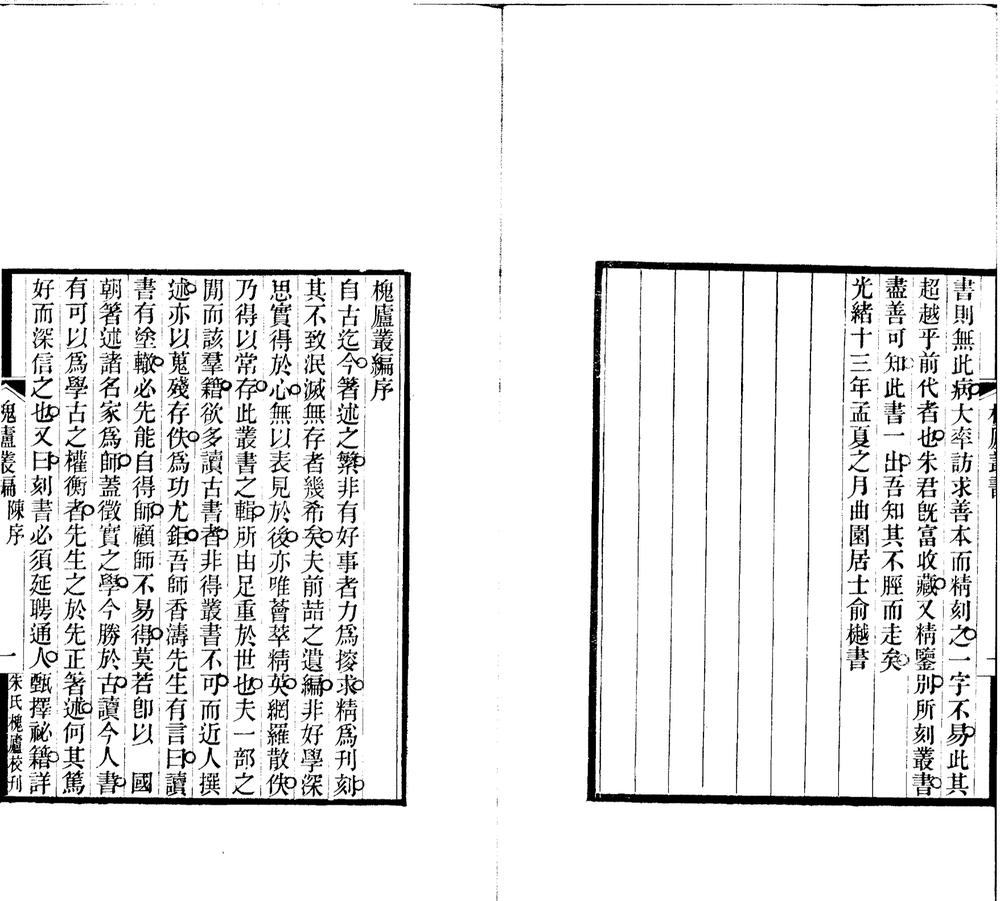 書則無此病大率訪求善本而精刻之一字不易此其
超越乎前代者也朱君旣富收藏又精鑒別所刻叢書
盡善可知此書一出吾知其不脛而走矣
光緒十三年孟夏之月曲園居士俞樾書
槐廬叢編序
自古迄今箸述之繁非有好事者力爲搜求精爲刊刻
其不致泯滅無存者幾希矣夫前喆之遺編非好學深
思實得於心無以表見於後亦唯薈萃精英網羅散佚
乃得以常存此叢書之輯所由足重於世也夫一部之
閒而該羣籍欲多讀古書者非得叢書不可而近人撰
述亦以蒐殘存佚爲功尤鉅吾師香濤先生有言曰讀
書有塗轍必先能自得師顧師不易得莫若卽以　國
朝箸述諸名家爲師蓋徵實之學今勝於古讀今人書
有可以爲學古之權衡者先生之於先正箸述何其篤
好而深信之也又曰刻書必須延聘通人甄擇祕籍詳
槐廬叢編　陳序
一
朱氏槐廬校刊